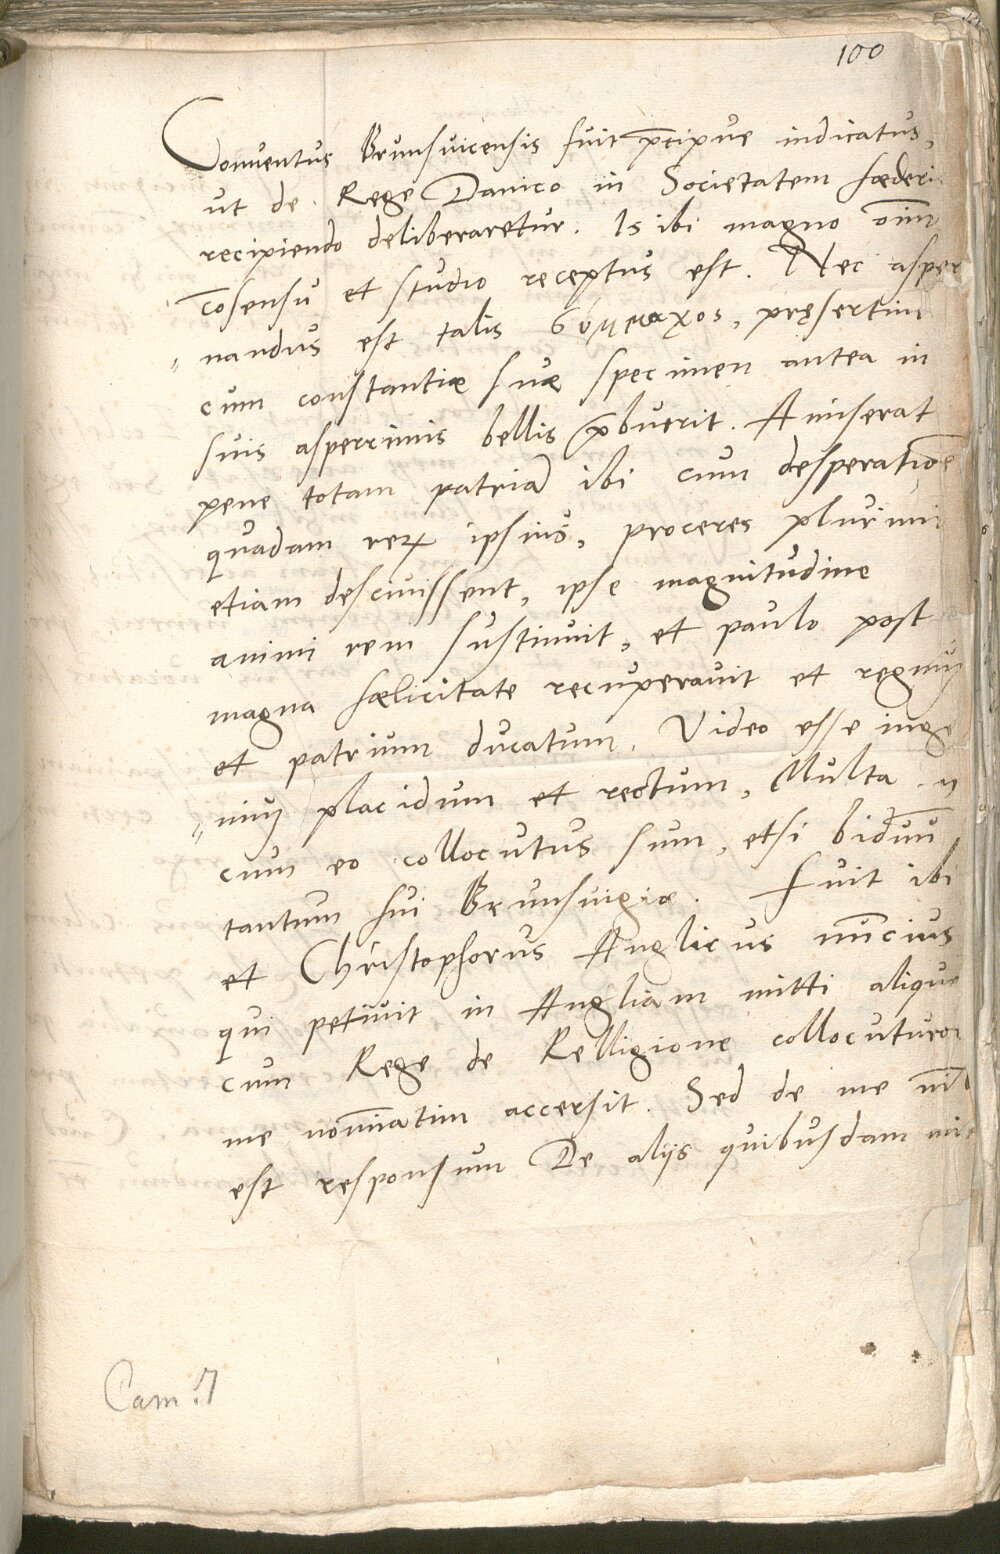 100
Conventus Brunsuicensis fuit p̄cipue indicatus,
ut de Rege Danico in Societatem fœderi
recipiendo deliberaretur. Is ibi magno oīm
cōsensu et studio receptus est. Nec asper
„ nandus est talis σύμμαχος, pręsertim
cum constantiæ suæ specimen antea in
suis asperrimis bellis p̄buerit. Amiserat
pene totam patriā ibi cum desperatiōe
quadam rerꝝ ipsius, proceres plurimi
etiam desciuissent, ipse magnitudine
animi rem sustinuit, et paulo post
magna fœlicitate recuperauit et regnuȝ
et patrium ducatum. Video esse inge
„ niuȝ placidum et rectum, Multa
cum eo collocutus sum, etsi biduū
tantum fui Brunsuigiæ. Fuit ibi
et Christophorus Anglicus nūcius
qui petiuit in Angliam mitti alique
cum Rege de Relligione collocuturor
me nom̄iatim accersit. Sed de me nī
est responsum De aliis quibusdam
Cam. 7